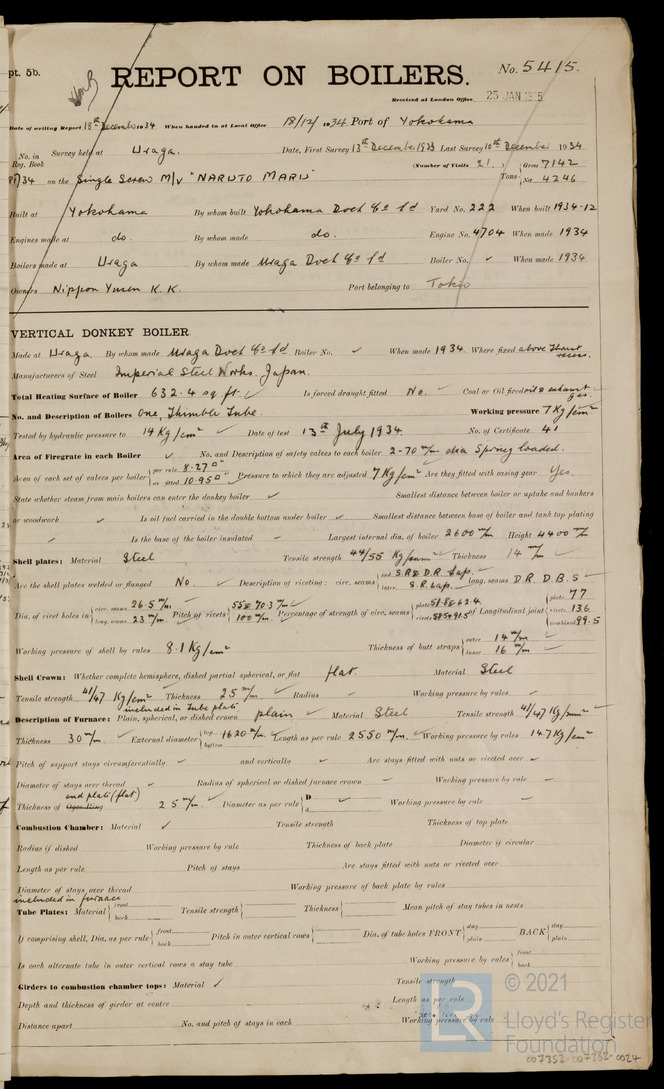 pt. 5b.
REPORT ON BOILERS.
No. 5415.
Received at London Office 25 JAN 1935
Date of writing Report 18th December 1934 When handed in at Local Office 18/12/1934 Port of Yokohama
No. in Reg. Book Survey held at Uraga. Date, First Survey 13th December 1933 Last Survey 10th December 1934
(Number of Visits 21.) Tons Gross 7142 Net 4246
on the Single Screw M/V "NARUTO MARU"
Built at Yokohama By whom built Yokohama Dock Co Ld Yard No. 222 When built 1934-12
Engines made at do. By whom made do. Engine No. 4704 When made 1934
Boilers made at Uraga By whom made Uraga Dock Co Ld Boiler No. ✓ When made 1934
Owners Nippon Yusen K. K. Port belonging to Tokio
VERTICAL DONKEY BOILER.
Made at Uraga. By whom made Uraga Dock Co Ld Boiler No. ✓ When made 1934. Where fixed above Thrust recess.
Manufacturers of Steel Imperial Steel Works. Japan.
Total Heating Surface of Boiler 632.4 sq ft. ✓ Is forced draught fitted No. ✓ Coal or Oil fired oil & exhaust gas.
No. and Description of Boilers One, Thimble Tube. Working pressure 7 Kg/cm²
Tested by hydraulic pressure to 14 Kg/cm² ✓ Date of test 13th July 1934. No. of Certificate 41
Area of Firegrate in each Boiler ✓ No. and Description of safety valves to each boiler 2-70 m/m dia Spring loaded.
Area of each set of valves per boiler per rule 8.27 □" as fitted 10.95 □" Pressure to which they are adjusted 7 Kg/cm² Are they fitted with easing gear Yes.
State whether steam from main boilers can enter the donkey boiler ✓ Smallest distance between boiler or uptake and bunkers
or woodwork ✓ Is oil fuel carried in the double bottom under boiler ✓ Smallest distance between base of boiler and tank top plating
✓ Is the base of the boiler insulated ✓ Largest internal dia. of boiler 2600 m/m Height 4400 m/m
Shell plates: Material Steel Tensile strength 44/55 Kg/mm² Thickness 14 m/m ✓
Are the shell plates welded or flanged No. ✓ Description of riveting: circ. seams end S.R & D.R Lap. inter. S.R. Lap. long. seams D.R. D.B.S ✓
Dia. of rivet holes in circ. seams 26.5 m/m. long. seams 23 m/m. Pitch of rivets 55 & 70.3 m/m 100 m/m. Percentage of strength of circ. seams plate 51.8 & 62.4 rivets 58.5 & 91.5 of Longitudinal joint plate 77 rivets 136 combined 99.5
Working pressure of shell by rules 8.1 Kg/cm² Thickness of butt straps outer 14 m/m inner 16 m/m
Shell Crown: Whether complete hemisphere, dished partial spherical, or flat flat. Material Steel
Tensile strength 41/47 Kg/cm² Thickness 25 m/m ✓ Radius ✓ Working pressure by rules ✓
included in tube plate
Description of Furnace: Plain, spherical, or dished crown plain ✓ Material Steel Tensile strength 41/47 Kg/mm² ✓
Thickness 30 m/m. External diameter top 1620 m/m bottom Length as per rule 2550 m/m. ✓ Working pressure by rules 14.7 Kg/cm²
Pitch of support stays circumferentially ✓ and vertically ✓ Are stays fitted with nuts or riveted over ✓
Diameter of stays over thread ✓ Radius of spherical or dished furnace crown ✓ Working pressure by rule ✓
end plate (flat)
Thickness of Ogee Ring 25 m/m. ✓ Diameter as per rule D d ✓ Working pressure by rule ✓
Combustion Chamber: Material ✓ Tensile strength Thickness of top plate
Radius if dished Working pressure by rule Thickness of back plate Diameter if circular
Length as per rule Pitch of stays Are stays fitted with nuts or riveted over
Diameter of stays over thread Working pressure of back plate by rules
included in furnace
Tube Plates: Material front back Tensile strength Thickness Mean pitch of stay tubes in nests
If comprising shell, Dia. as per rule front back Pitch in outer vertical rows Dia. of tube holes FRONT stay plain BACK stay plain
Is each alternate tube in outer vertical rows a stay tube Working pressure by rules front back
Girders to combustion chamber tops: Material ✓ Tensile strength
Depth and thickness of girder at centre Length as per rule
Distance apart No. and pitch of stays in each Working pressure by rule
© 2021
Lloyd's Register
Foundation
007352-007352-0024